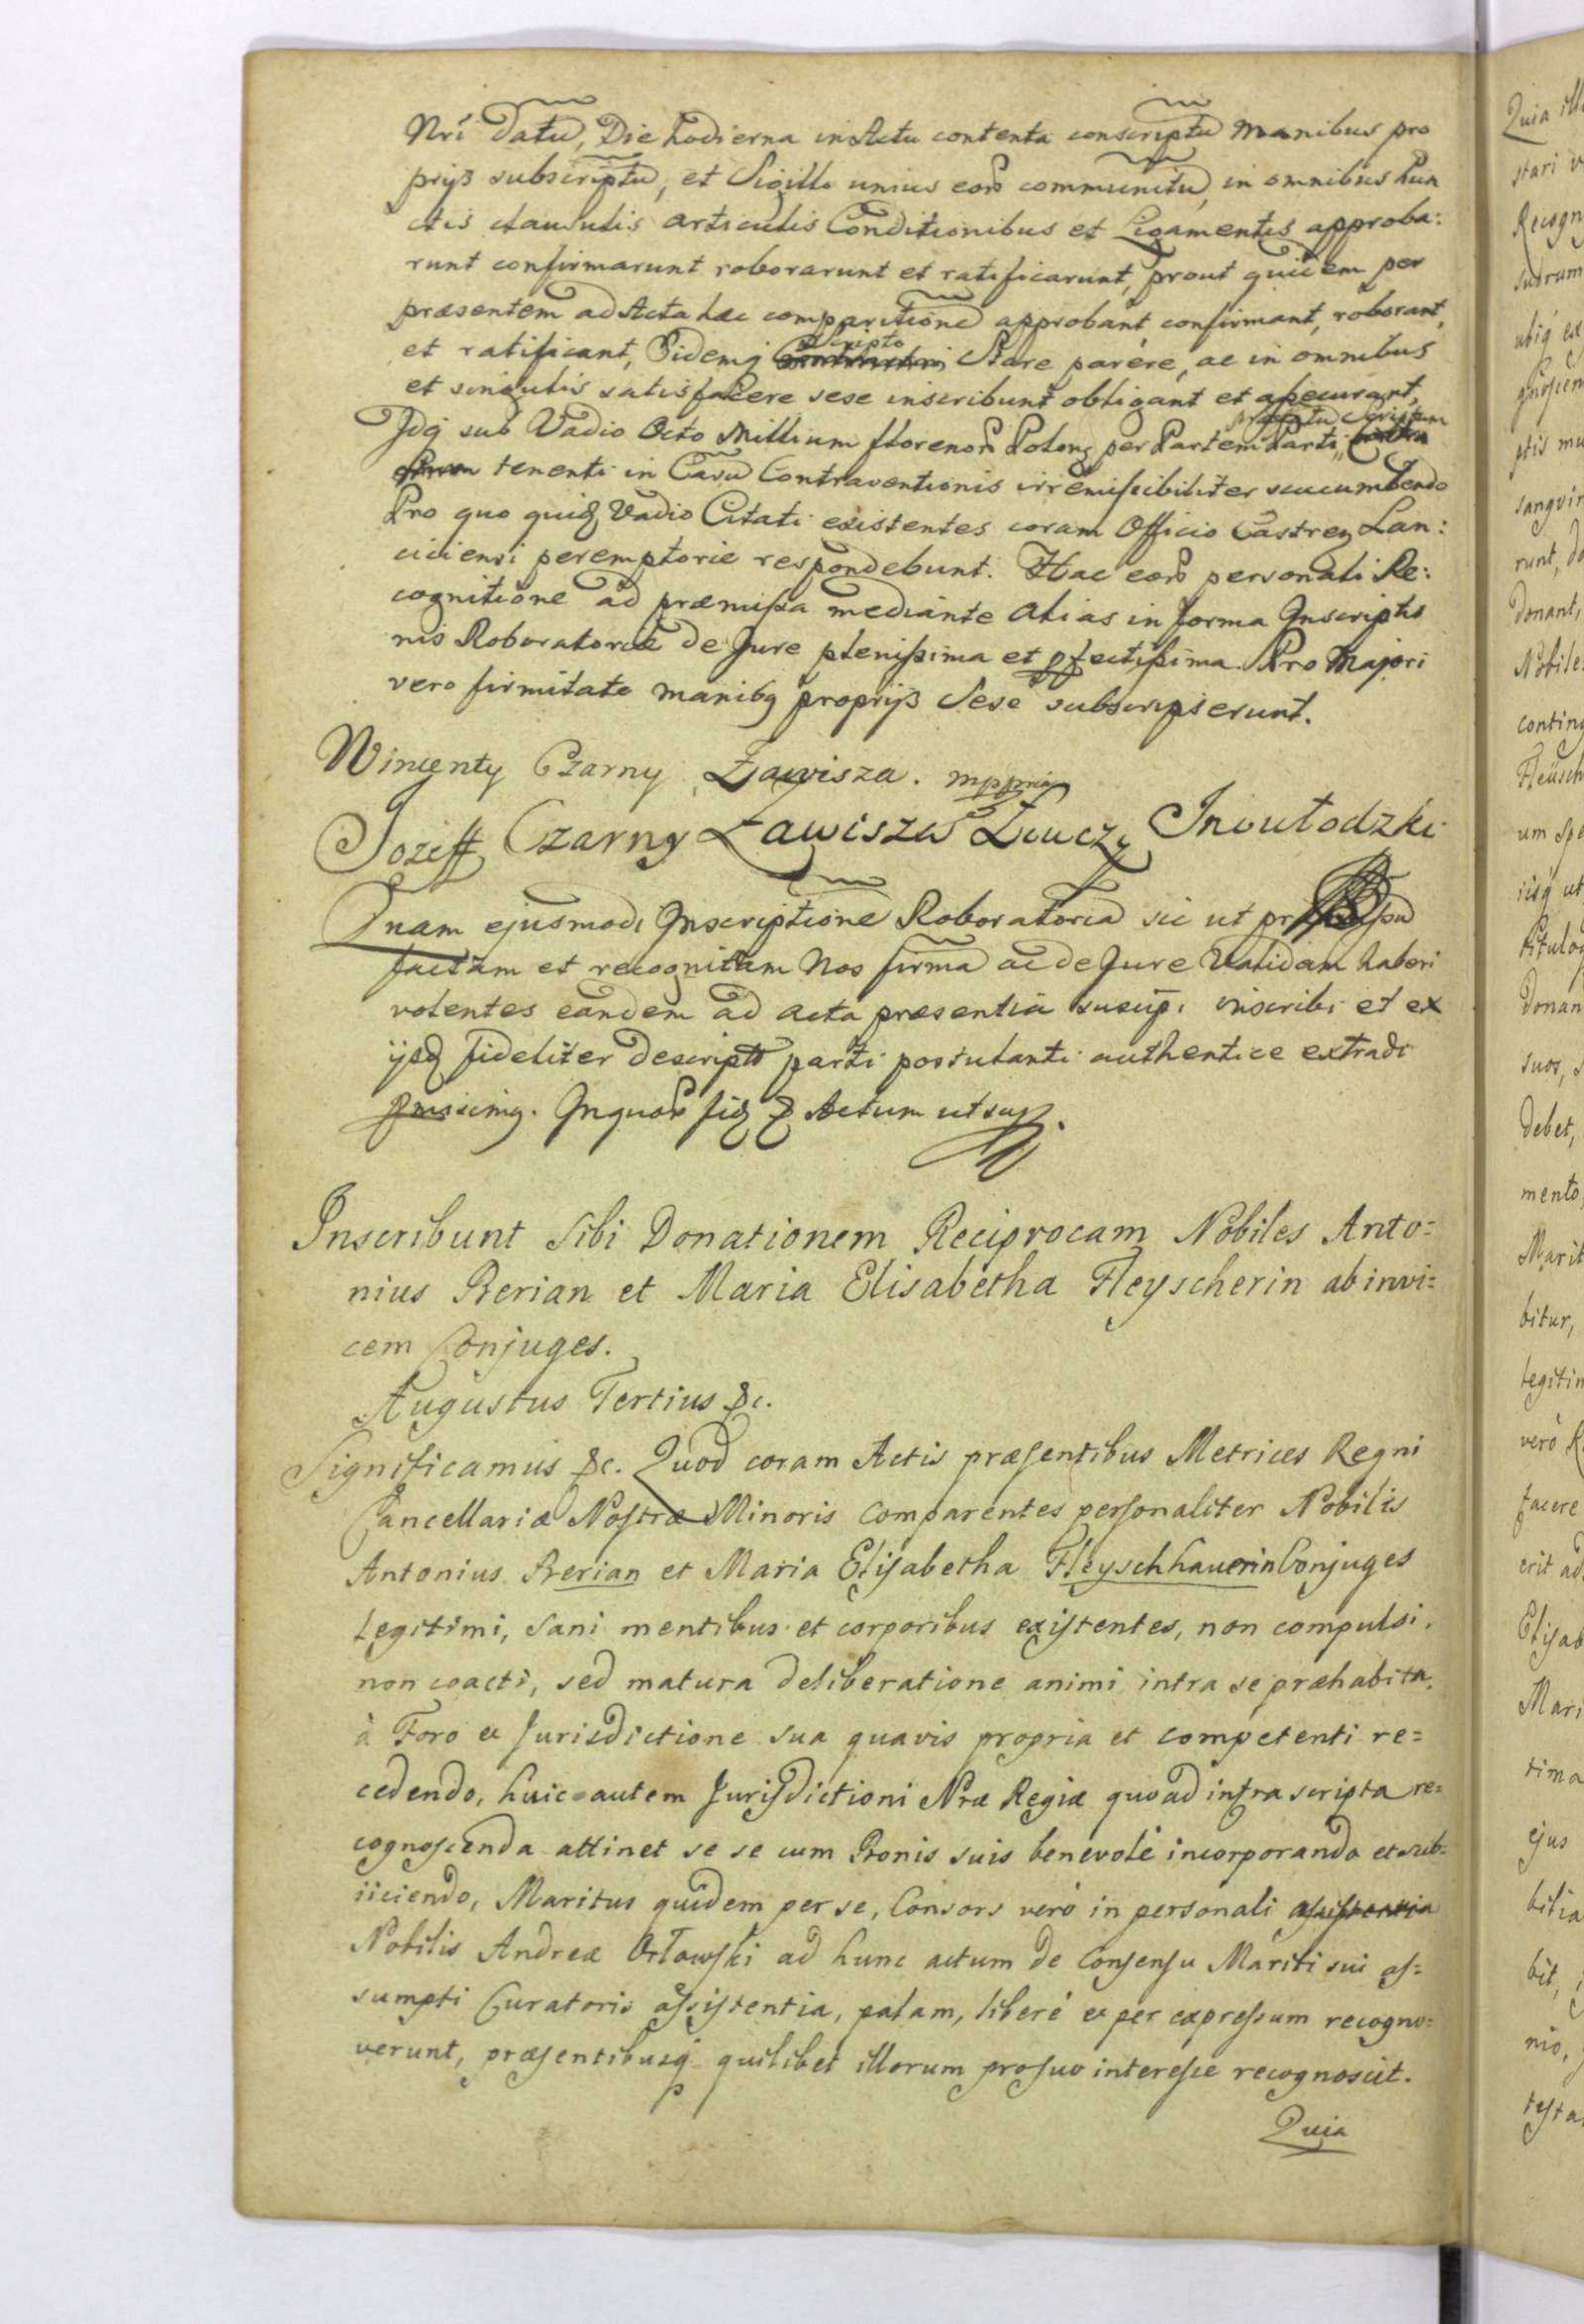 Nri datu, Die hodierna in Actu contenta conscriptu manibus pro
prijs subscriptu, et Sigillo unius eord communitu, in omnibus Pun
ctis clausulis articulis Conditionibus et Ligamentis approba:
runt confirmarunt roborarunt et ratificarunt, prout quidem per
præsentem ad Acta hæc comparitione approbant confirmant, roborant,
et ratificant, Eidemq scripto Stare parere, ac in omnibus
et singulis satisfacere sese inscribunt obligant et assecurant,
Idq sub Vadio Octo Millium florenor Polonz per Partem Parti
tenenti in Casu Contraventionis irremissibiliter succumbendo
Pro quo quidz Vadio Citati existentes coram Officio Castrez Lan:
ciciensi peremptorie respondebunt. Hac eord personali Re:
cognitione ad præmissa mediante alias in forma Inscriptio
nis Roboratoriæ de Jure plenissima et pfectissima. Pro Majori
vero firmitate manibq proprijs Sese subscripserunt.
Wincenty Czarny Zawisza. mppria
Jozeff Czarny Zawisza Inoułodzki
Quam ejusmodi Inscriptione Roboratoria sic ut
factam et recognitam Nos firma ac de Jure Validam haberi
volentes eandem ad acta præsentia suscip. inscribi et ex
ijsdz fideliter descripta parti postulanti authentice extradi
Inquor fidz Actum ut sup.
Inscribunt Sibi Donationem Reciprocam Nobiles Anto=
nius Berian et Maria Elisabetha Fleyscherin ab invi=
cem Conjuges.
Augustus Tertius &c.
Significamus &c. Quod coram Actis præsentibus Metrices Regni
Cancellariæ Nostræ Minoris Comparentes personaliter Nobilis
Antonius Berian et Maria Elisabetha Fleyschhauerin Conjuges
legitimi, Sani mentibus et corporibus existentes, non compulsi,
non coacti, sed matura deliberatione animi intra se præhabita,
à Foro et Jurisdictione sua quavis propria et competenti re=
cedendo, huic autem Jurisdictioni Nræ Regiæ quoad infra scripta re=
cognoscenda attinet se se cum Bonis suis benevolè incorporando et sub=
iiciendo, Maritus quidem per se, Consors verò in personali assistentia
Nobilis Andreæ Orłowski ad hunc actum de Consensu Mariti sui as=
sumpti Curatoris assistentia, palam, liberè et per expressum recogno=
verunt, præsentibusq quilibet illorum pro suo interesse recognoscit.
Quia